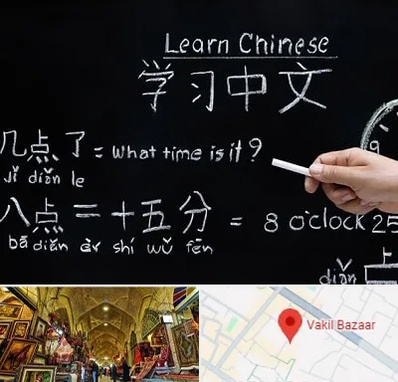 Learn Chinese
学习中文
几点了 = What time is it?
Jǐ diǎn le
八点二十五分 = 8 o'clock 25
bā diǎn èr shí wǔ fēn
上
diǎn
9
Vakil Bazaar